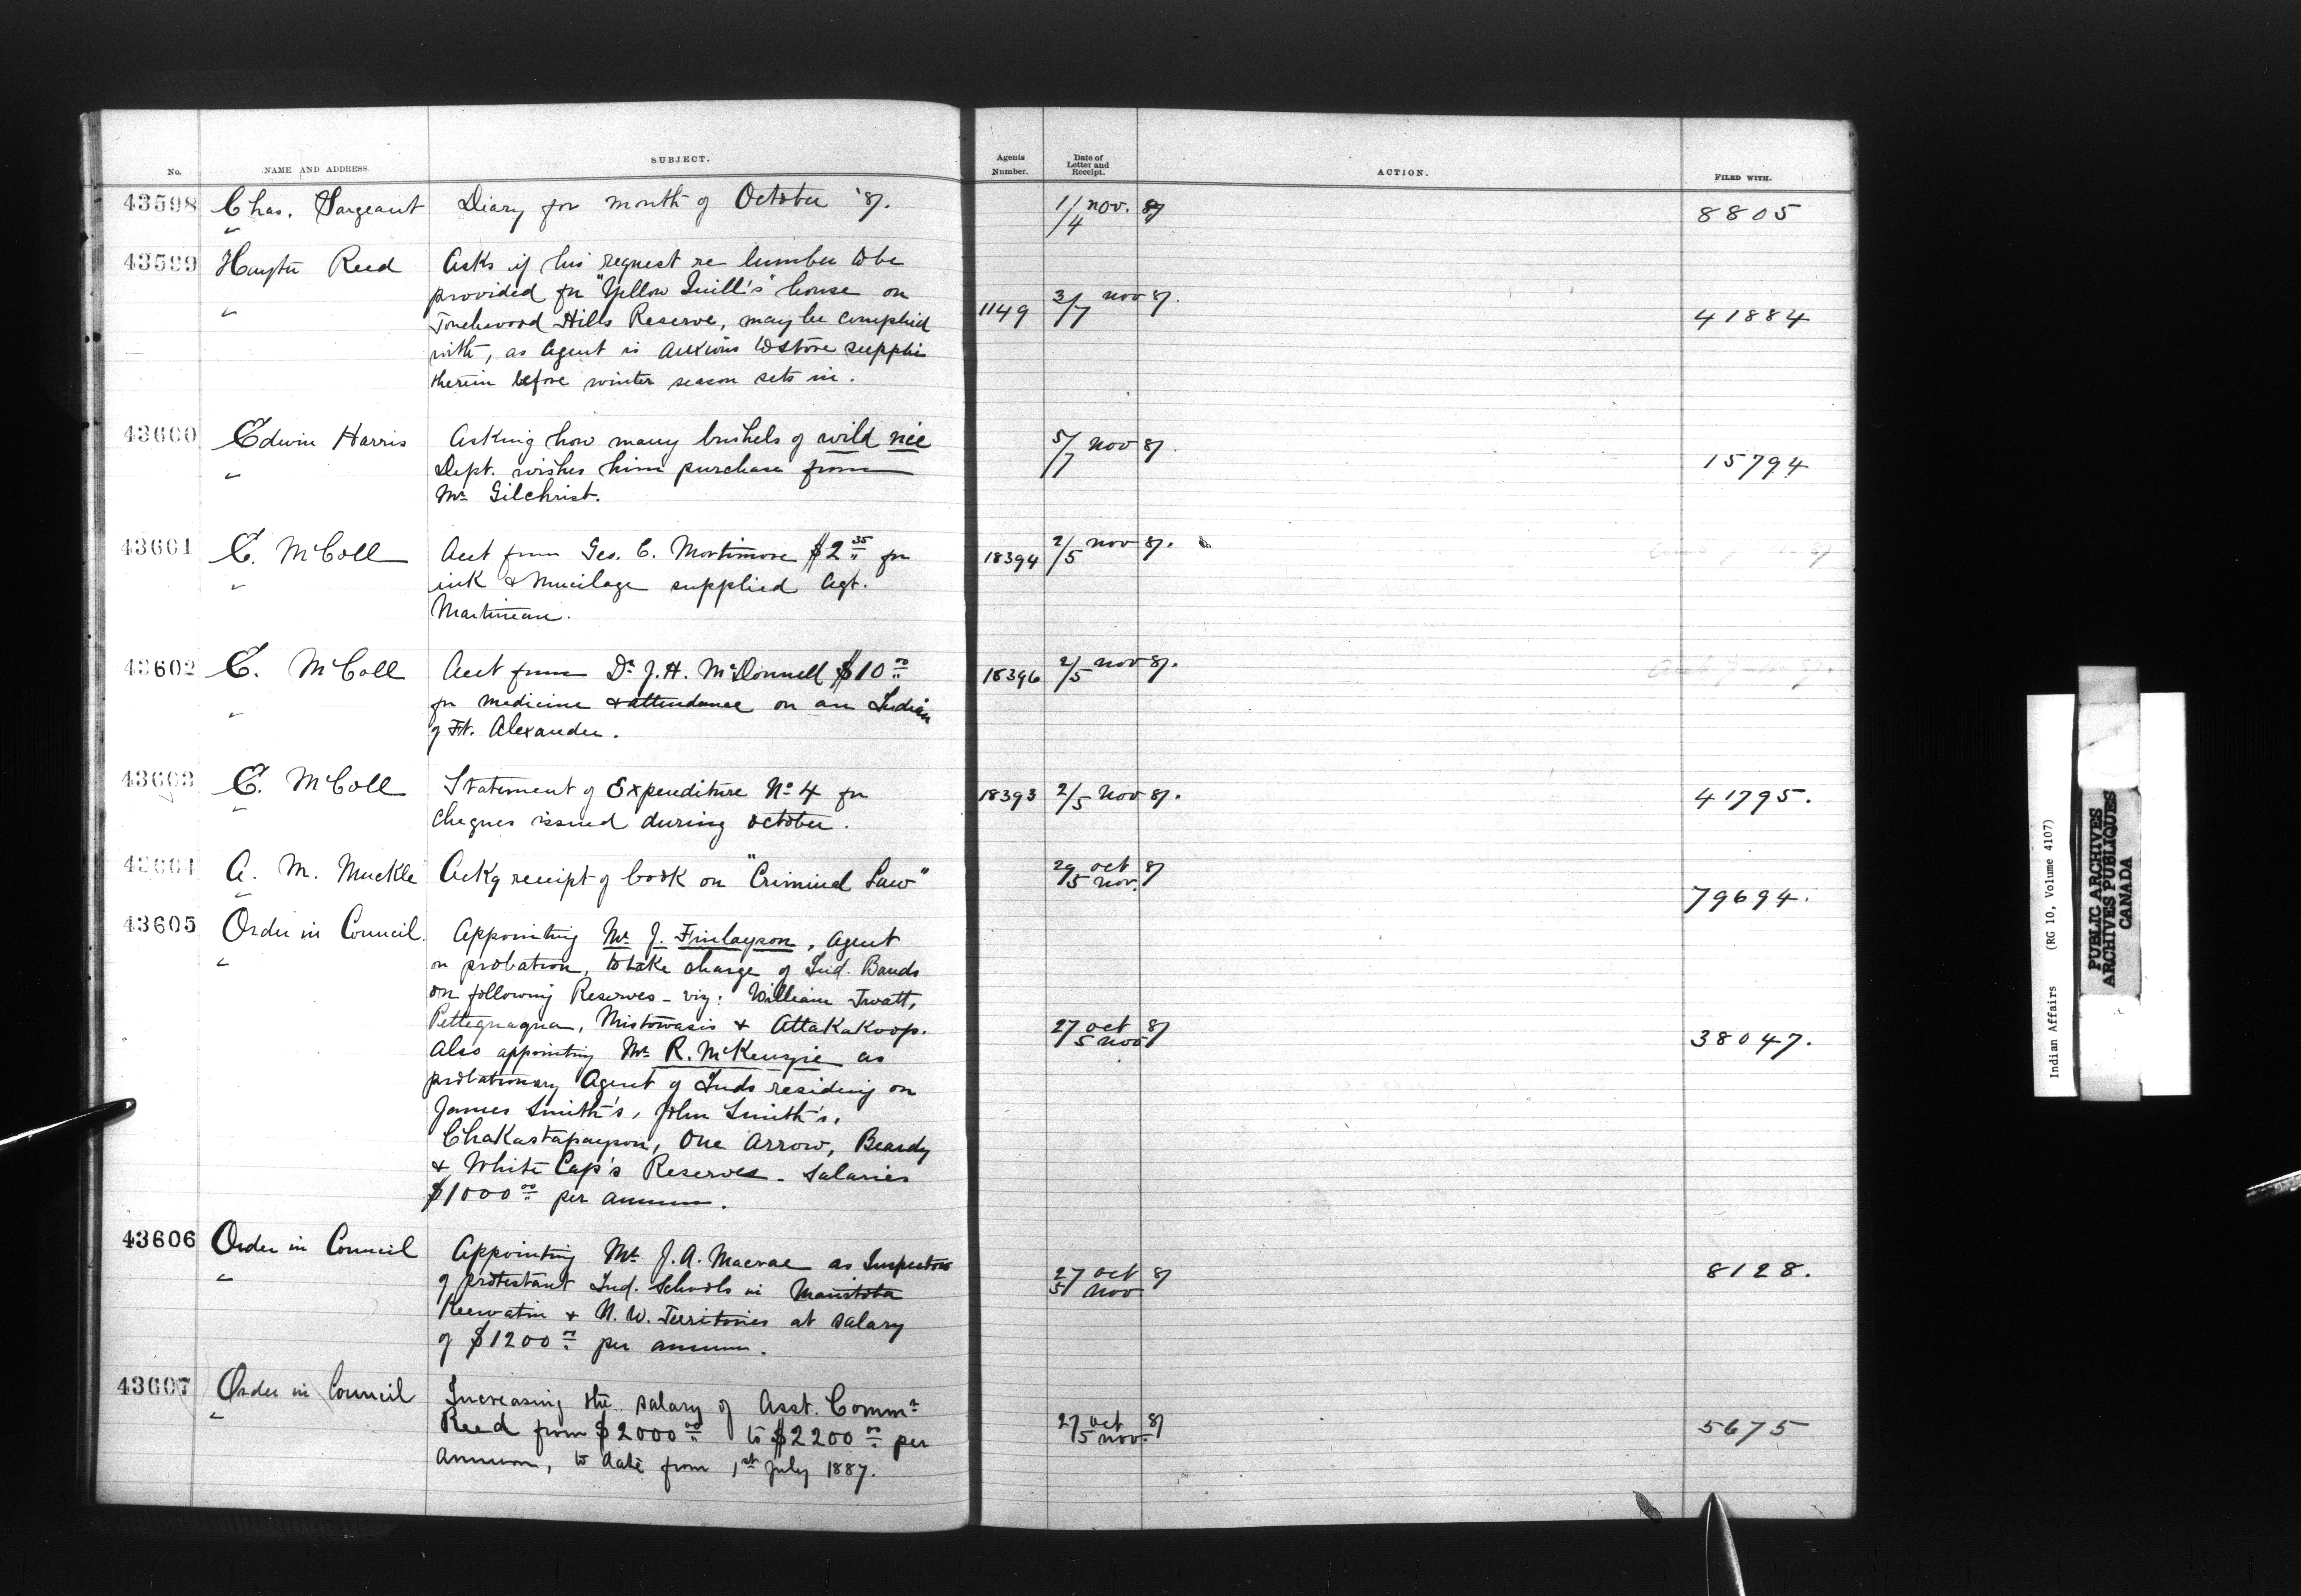 No. NAME AND ADDRESS. SUBJECT. Agents Number. Date of Letter and Receipt. ACTION. FILED WITH.
43598 Chas. Sargeant Diary for month of October '87. 1/4 nov. 87 8805
43599 Hayter Reed Asks if his request re lumber to be
provided for "Yellow Quill's" house on 1149 3/7 nov 87. 41884
Touchwood Hills Reserve, may be complied
with, as Agent is anxious to store supplies
therein before winter season sets in.
43600 Edwin Harris Asking how many bushels of wild rice 5/7 nov 87.
Dept. wishes him purchase from 15794
Mr Gilchrist.
43601 E. McColl Acct from Geo. C. Mortimore $2 35 for 18394 2/5 nov 87.
ink & Mucilage supplied Agt.
Martineau.
43602 E. McColl Acct from Dr J. H. McDonnell $10 00 18396 2/5 nov 87.
for medicine & attendance on an Indian
of Ft. Alexander.
43603 E. McColl Statement of Expenditure No 4 for 18393 2/5 Nov 87. 41795.
Cheques issued during October.
43604 A. M. Muckle Ackg receipt of book on "Criminal Law" 29 oct 5 nov. 87 79694.
43605 Order in Council. Appointing Mr J. Finlayson, Agent
on probation, to take charge of Ind. Bands
on following Reserves - viz: William Twatt,
Petteguaqua, Mistowasis & Attakakoop. 27 oct 5 nov 87 38047.
Also appointing Mr R. McKenzie as
probationary Agent of Inds residing on
James Smith's, John Smith's,
Chakastapaypon, One Arrow, Beardy
& White Cap's Reserves - Salaries
$1000 00 per annum.
43606 Order in Council Appointing Mr J. A. Macrae as Inspector
of protestant Ind. Schools in Manitoba 27 oct 5 nov 87 8128.
Keewatin & N. W. Territories at salary
of $1200 00 per annum.
43607 Order in Council Increasing the salary of Asst. Commr
Reed from $2000 00 to $2200 00 per 27 oct 5 nov. 87 5675
Annum, to date from 1st July 1887.
Indian Affairs (RG 10, Volume 4107)
PUBLIC ARCHIVES
ARCHIVES PUBLIQUES
CANADA